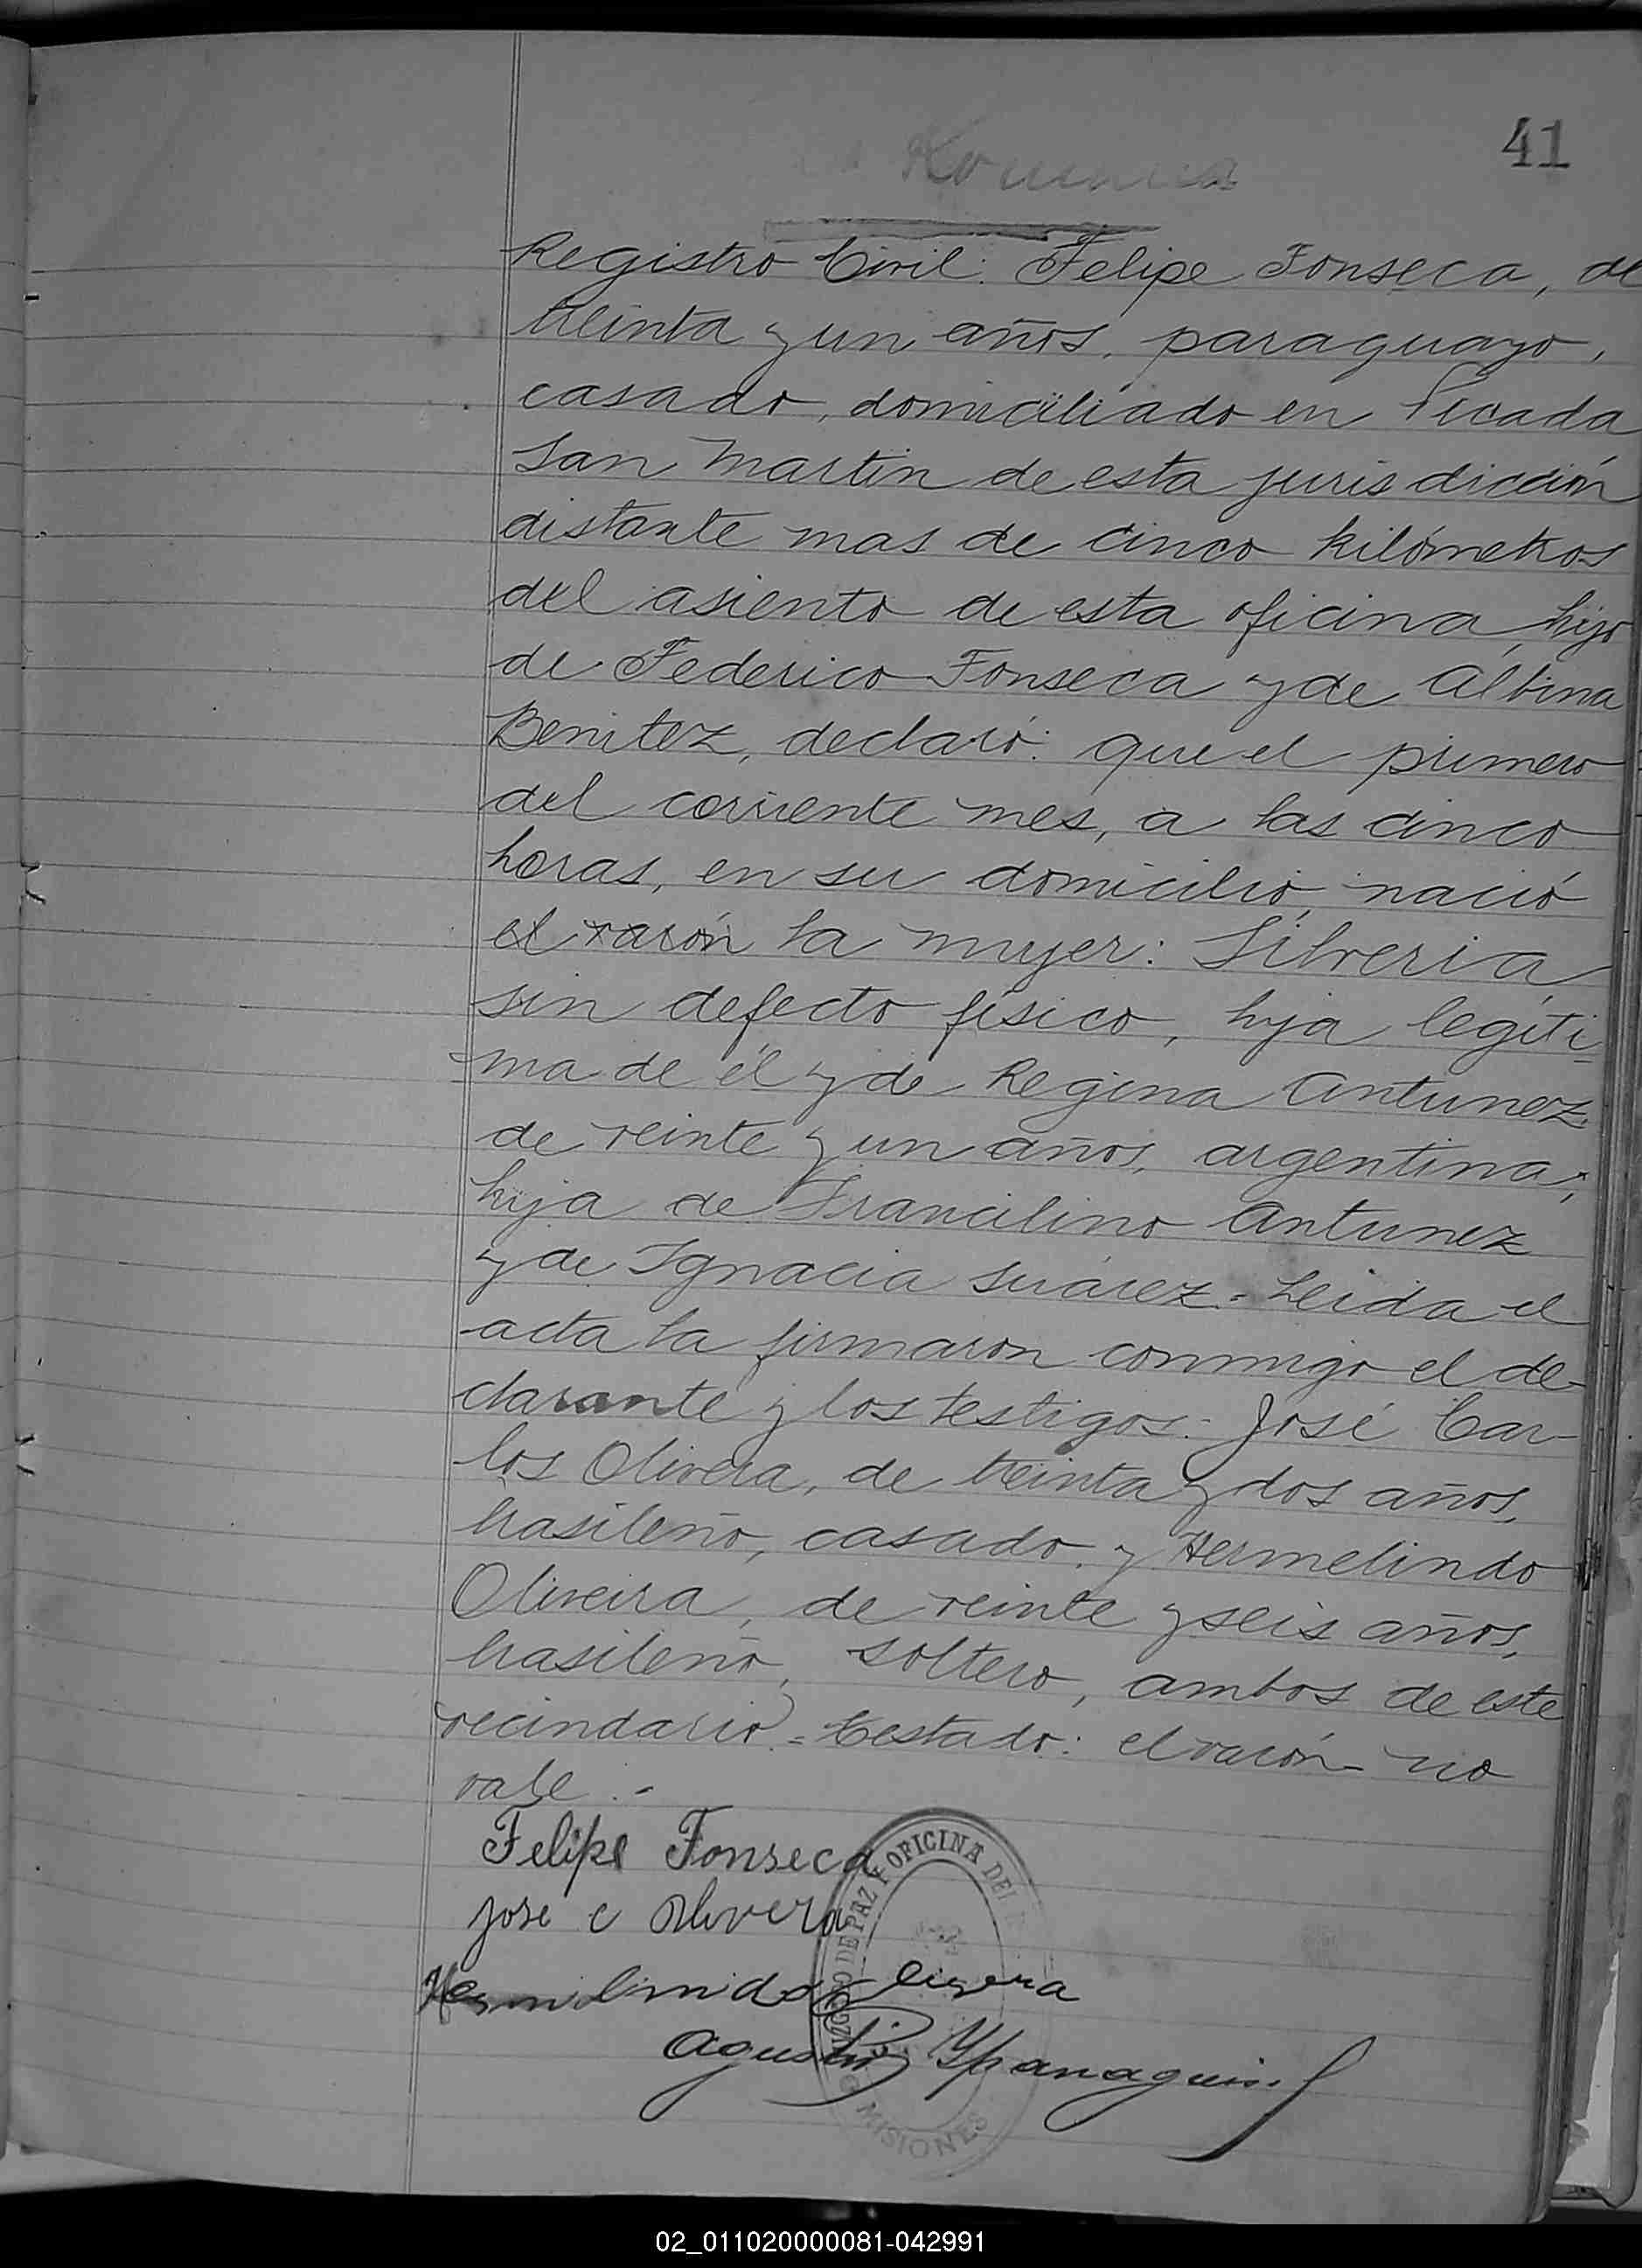 41
Registro Civil: Felipe Fonseca, de
treinta y un años, paraguayo,
casado, domiciliado en Picada
San Martin de esta jurisdicción
distante mas de cinco kilómetros
del asiento de esta oficina, hijo
de Federico Fonseca y de Albina
Benitez, declaró: que el primero
del corriente mes, a las cinco
horas, en su domicilio, nació
el varón la mujer: Silveria,
sin defecto físico, hija legíti-
ma de él y de Regina Antunez,
de veinte y un años, argentina,
hija de Francilino Antunez
y de Ignacia Suárez.= Leida el
acta la firmaron conmigo el de-
clarante y los testigos: José Car-
los Olivera, de treinta y dos años,
brasileño, casado. y Hermelindo
Oliveira, de veinte y seis años,
brasileño, soltero, ambos de este
vecindario.= Testado: el varón - no
vale.-
Felipe Fonseca
jose c Olivera
Agustin
JUZGADO DE PAZ Y OFICINA DEL
MISIONES
02_011020000081-042991